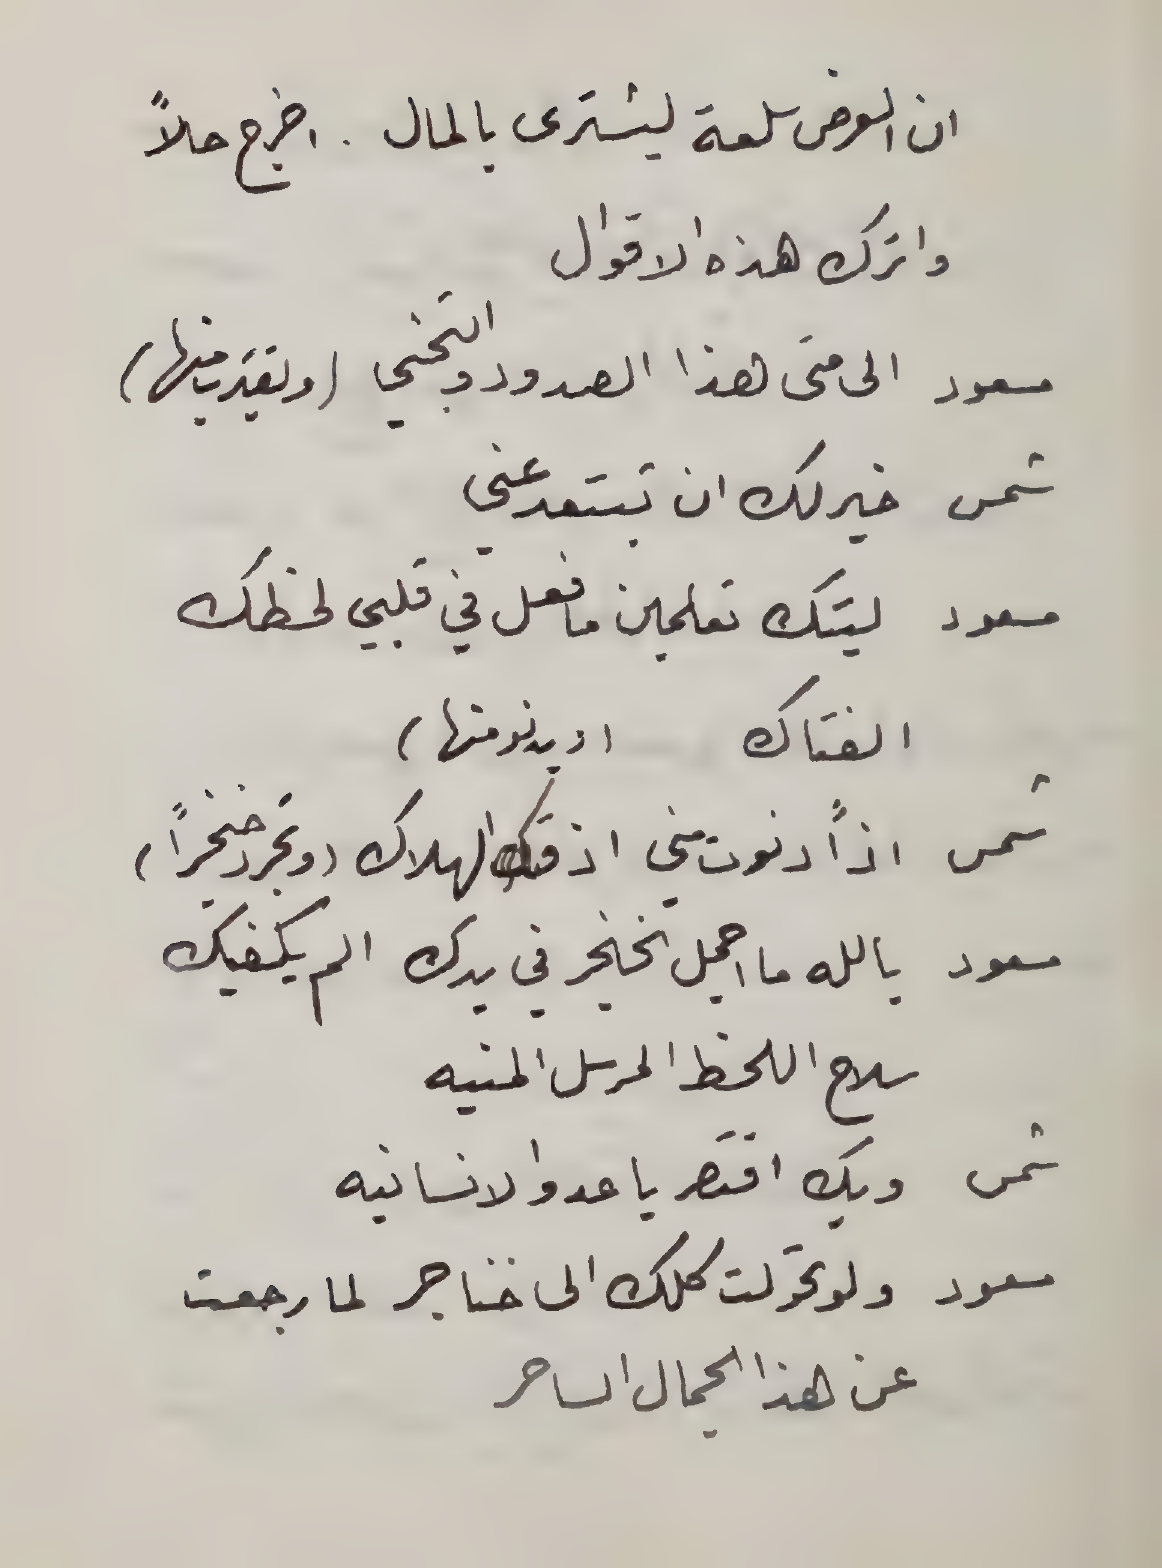 ان العرض سلعة ليشترى بالمال . اخرج حالاً
واترك هذه الاقوال
مسعود الى متى هذا الصدود والتجني (ويقترب منها)
شمس خير لك ان تبتعد عني
مسعود ليتك تعلمين ما فعل في قلبي لحظك
الفتاك (ويدنو منها)
شمس اذاً دنوت مني اذقك الهلاك (وتجرد خنجراً)
مسعود يالله ما اجمل الخنجر في يدك الم يكفيك
سلاح اللحظ المرسل المنيه
شمس ويك اقتصر يا عدو الانسانيه
مسعود ولو تحولت كلك الى خناجر لما رجعت
عن هذا الجمال الساحر